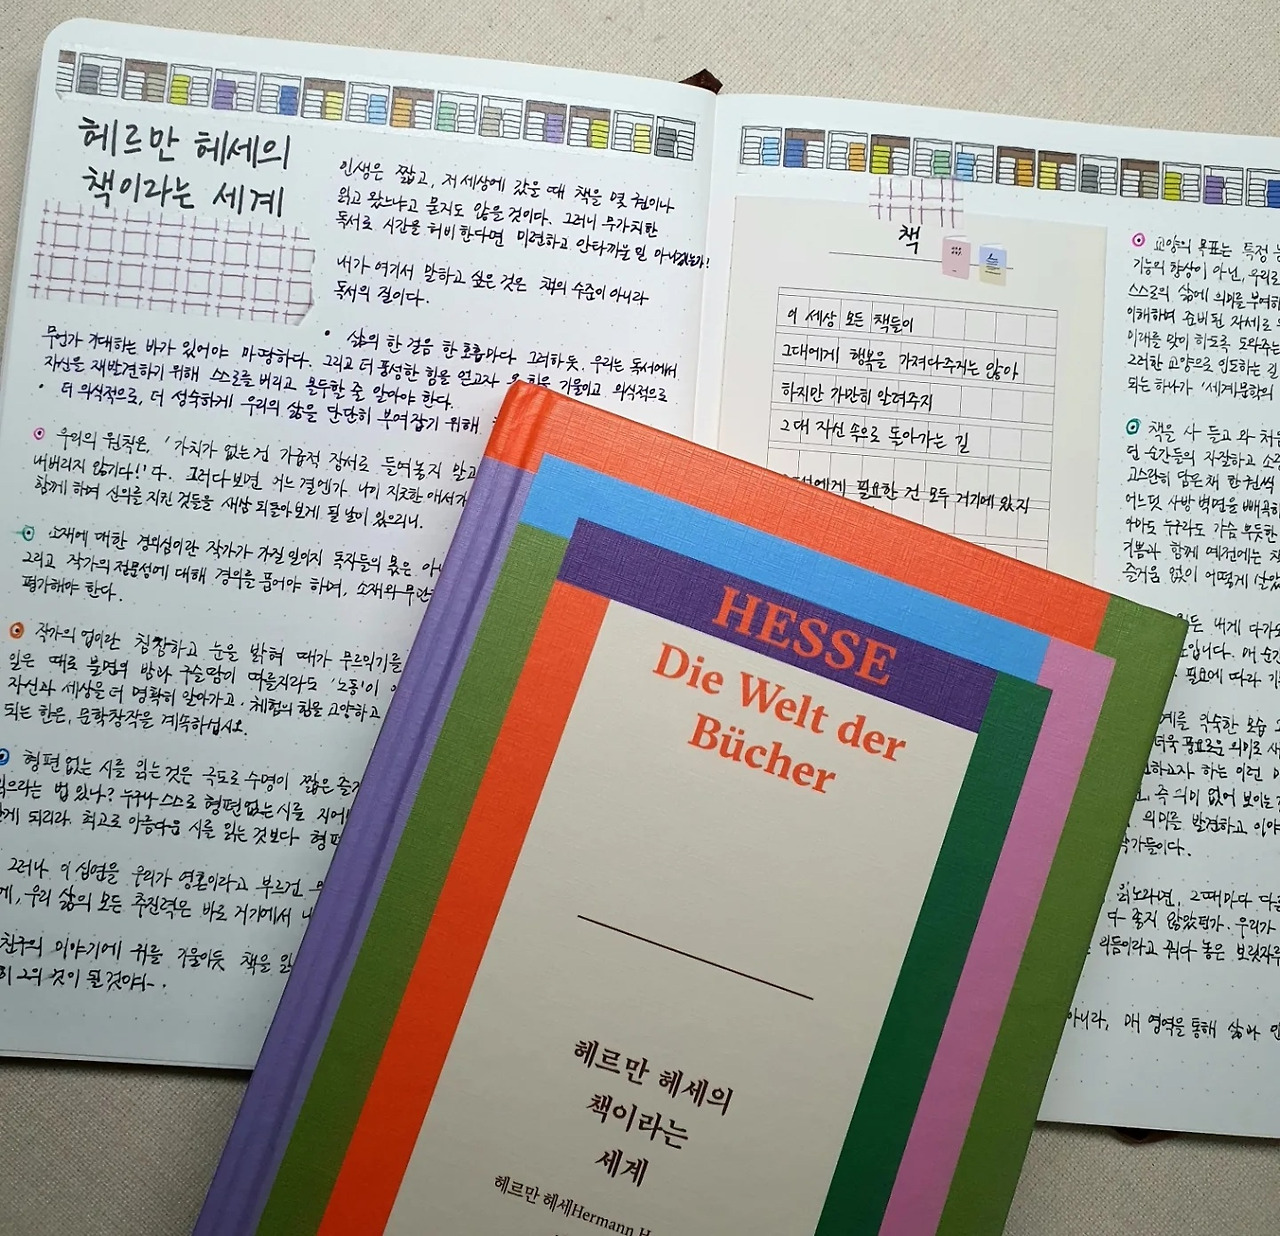 헤르만 헤세의
책이라는 세계
인생은 짧고, 저 세상에 갔을 때 책을 몇 권이나
읽고 왔느냐고 묻지도 않을 것이다. 그러니 무가치한
독서로 시간을 허비한다면 미련하고 안타까운 일 아니겠는가!
내가 여기서 말하고 싶은 것은 책의 수준이 아니라
독서의 질이다.
• 삶의 한 걸음 한 호흡마다 그러하듯, 우리는 독서에서
무언가 기대하는 바가 있어야 마땅하다. 그리고 더 풍성한 힘을 얻고자 온 힘을 기울이고 의식적으로
자신을 재발견하기 위해 스스로를 버리고 몰두할 줄 알아야 한다.
• 더 의식적으로, 더 성숙하게 우리의 삶을 단단히 부여잡기 위해
우리의 원칙은, '가치가 없는 건 가급적 장서로 들여놓지 말고
내버리지 않기다!'다. 그러다보면 어느 결엔가 나이 지긋한 애서가
함께 하며 신의를 지킨 것들을 새삼 되돌아보게 될 날이 있으리니.
소재에 대한 경외심이란 작가가 가질 일이지 독자들의 몫은 아니
그리고 작가의 전문성에 대해 경의를 품어야 하며, 소재와 무관
평가해야 한다.
작가의 업이란 침잠하고 눈을 밝혀 때가 무르익기를
일은 때로 불면의 밤과 구슬땀이 따를지라도 '노동'이
자신과 세상을 더 명확히 알아가고, 체험의 힘을 고양하고
되는 한은, 문학창작을 계속하십시오.
형편없는 시를 읽는 것은 극도로 수명이 짧은 즐거
읽으라는 법 있나? 누구나 스스로 형편없는 시를 지어
하게 되리라. 최고로 아름다운 시를 읽는 것보다 형편
그러나 이 심연을 우리가 영혼이라고 부르건
게, 우리 삶의 모든 추진력은 바로 거기에서 나
친구의 이야기에 귀를 기울이듯 책을 읽
히 그의 것이 될 것이다.
책
이 세상 모든 책들이
그대에게 행복을 가져다주지는 않아
하지만 가만히 알려주지
그대 자신 속으로 돌아가는 길
에게 필요한 건 모두 거기에 있지
교양의 목표는 특정 능
기능의 향상이 아닌, 우리로
스스로의 삶에 의미를 부여하
이해하며 준비된 자세로
미래를 맞이 하도록 도와주는
그러한 교양으로 인도하는 길
되는 하나가 '세계문학의
책을 사 들고 와 처음
던 순간들의 자잘하고 소
고스란히 담은 채 한 권씩
어느덧 사방 벽면을 빼곡히
아마도 누구라도 가슴 뿌듯한
기쁨과 함께 예전에는 책
즐거움 없이 어떻게 살았
든 내게 다가오
입니다. 매 순간
필요에 따라
계를 익숙한 모습
더욱 풍요로운 의미로
하고자 하는 이런
, 즉 의미 없어 보이는
의미를 발견하고 이야
작가들이다.
읽노라면, 그때마다 다른
다 좋지 않았던가. 우리가
리듬이라고 꿔다 놓은 보릿자루
아니라, 매 영역을 통해 삶이
HESSE
Die Welt der
Bücher
헤르만 헤세의
책이라는
세계
헤르만 헤세Hermann H